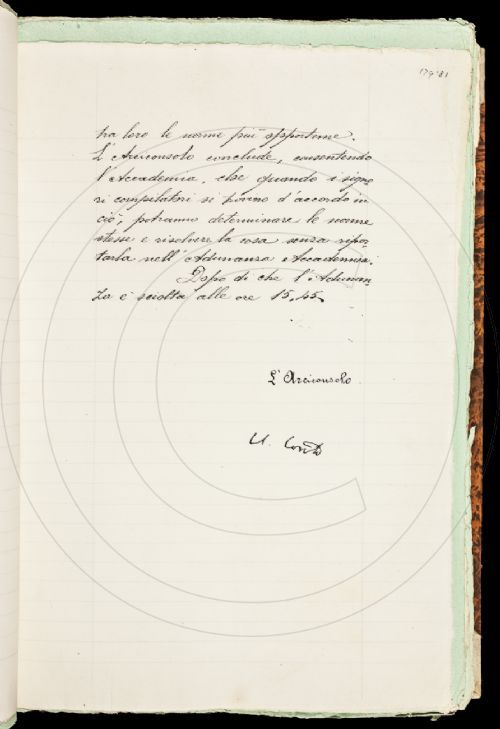 179.81
tra loro le norme più opportune.
L'Arciconsolo conclude, consentendo
l'Accademia, che quando i signo
ri compilatori si trovino d'accordo in
ciò, potranno determinare le norme
stesse e risolvere la cosa senza ripor
tarla nell'Adunanza Accademica.
Dopo di che l'Adunan
za è sciolta alle ore 15,45.
L'Arciconsolo